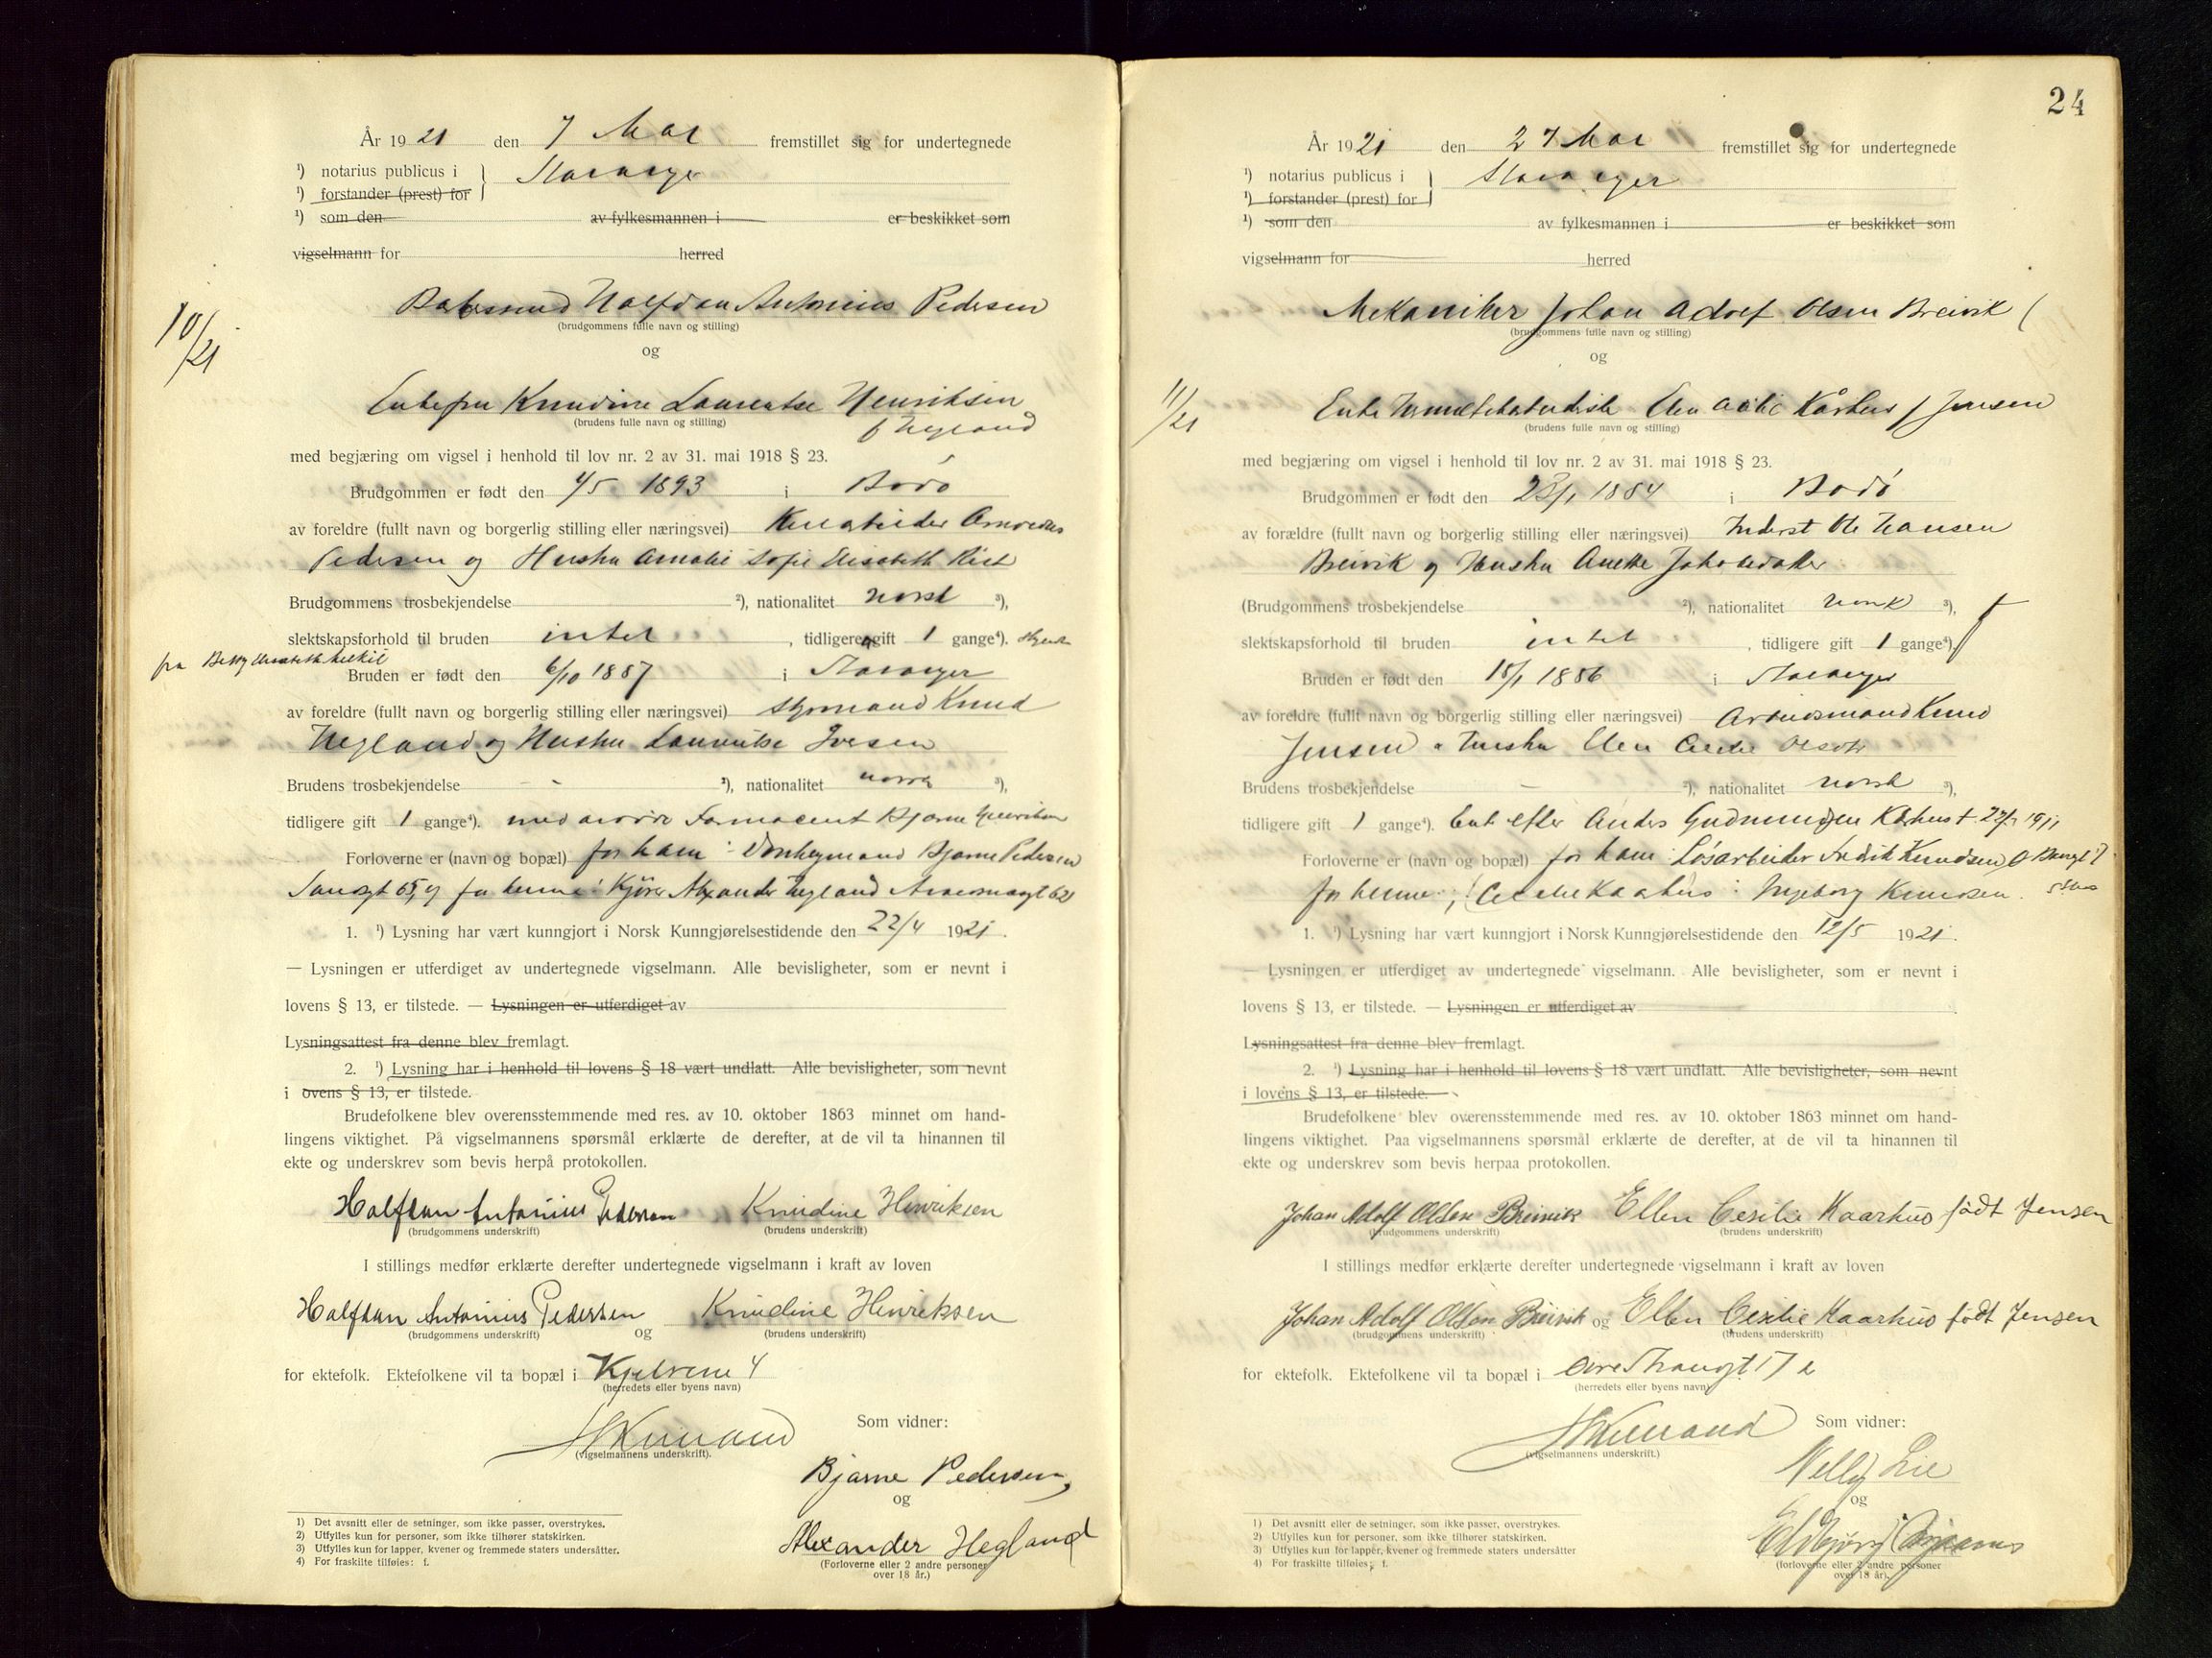 År 1921 den 7 Mai fremstillet sig for undertegnede
¹) notarius publicus i Stavanger
¹) forstander (prest) for
¹) som den av fylkesmannen i er beskikket som
vigselmann for herred
Halfdan Antonius Pedersen
(brudgommens fulle navn og stilling)
10/21
og
Enkefru Knudine Lauentse Henriksen
(brudens fulle navn og stilling)
f Hegland
med begjæring om vigsel i henhold til lov nr. 2 av 31. mai 1918 § 23.
Brudgommen er født den 4/5 1893 i Bodø
av foreldre (fullt navn og borgerlig stilling eller næringsvei)
Pedersen og Hustru Amalie Sofie Elisabeth
Brudgommens trosbekjendelse ²), nationalitet norsk ³),
slektskapsforhold til bruden intet , tidligere gift 1 gange⁴).
fra Betty
Bruden er født den 6/10 1887 i Stavanger
av foreldre (fullt navn og borgerlig stilling eller næringsvei) Styrmand Knud
Hegland og Hustru Lauentse Ivesen
Brudens trosbekjendelse - ²), nationalitet norsk ³),
tidligere gift 1 gange⁴). med Farmaceut Bjarne Henriksen
Forloverne er (navn og bopæl) for ham: Bjarne Pedersen
Sandgt 65, og for henne: Kjører Alexander Hegland 62
1. ¹) Lysning har vært kunngjort i Norsk Kunngjørelsestidende den 22/4 1921.
— Lysningen er utferdiget av undertegnede vigselmann. Alle bevisligheter, som er nevnt i
lovens § 13, er tilstede. — Lysningen er utferdiget av
Lysningsattest fra denne blev fremlagt.
2. ¹) Lysning har i henhold til lovens § 18 vært undlatt. Alle bevisligheter, som nevnt
i ovens § 13, er tilstede.
Brudefolkene blev overensstemmende med res. av 10. oktober 1863 minnet om hand-
lingens viktighet. På vigselmannens spørsmål erklærte de derefter, at de vil ta hinannen til
ekte og underskrev som bevis herpå protokollen.
Halfdan Antonius Pedersen Knudine Henriksen
(brudgommens underskrift) (brudens underskrift)
I stillings medfør erklærte derefter undertegnede vigselmann i kraft av loven
Halfdan Antonius Pedersen Knudine Henriksen
(brudgommens underskrift) og (brudens underskrift)
for ektefolk. Ektefolkene vil ta bopæl i Kjelvene 4
(herredets eller byens navn)
Som vidner:
(vigselmannens underskrift).
Bjarne Pedersen
og
Alexander Hegland
(Forloverne eller 2 andre personer
over 18 år.)
1) Det avsnitt eller de setninger, som ikke passer, overstrykes.
2) Utfylles kun for personer, som ikke tilhører statskirken.
3) Utfylles kun for lapper, kvener og fremmede staters undersåtter.
4) For fraskilte tilføies: f.
24
År 1921 den 27 Mai fremstillet sig for undertegnede
¹) notarius publicus i Stavanger
¹) forstander (prest) for
¹) som den av fylkesmannen i er beskikket som
vigselmann for herred
Mekaniker Johan Adolf Olsen Breivik
(brudgommens fulle navn og stilling)
og
11/21
Enke Ellen Cecilie Kårhus f Jensen
(brudens fulle navn og stilling)
med begjæring om vigsel i henhold til lov nr. 2 av 31. mai 1918 § 23.
Brudgommen er født den 23/1 1884 i Bodø
av forældre (fullt navn og borgerlig stilling eller næringsvei) Inderst Ole Hansen
Breivik og Hustru Anette
(Brudgommens trosbekjendelse ²), nationalitet norsk ³),
slektskapsforhold til bruden intet , tidligere gift 1 gange⁴).
Bruden er født den 18/1 1886 i Stavanger
av foreldre (fullt navn og borgerlig stilling eller næringsvei) Arbeidsmand Knud
Jensen & Hustru Elen Olsdtr
Brudens trosbekjendelse - ²), nationalitet norsk ³),
tidligere gift 1 gange⁴). Enk efter Anders Gudmundsen Kårhus + 1911
Forloverne er (navn og bopæl) for ham: Løsarbeider Fredrik Knudsen
for henne: Cecilie Kaarhus: Ingeborg Knudsen.
1. ¹) Lysning har vært kunngjort i Norsk Kunngjørelsestidende den 12/5 1921.
— Lysningen er utferdiget av undertegnede vigselmann. Alle bevisligheter, som er nevnt i
lovens § 13, er tilstede. — Lysningen er utferdiget av
Lysningsattest fra denne blev fremlagt.
2. ¹) Lysning har i henhold til lovens § 18 vært undlatt. Alle bevisligheter, som nevnt
i lovens § 13, er tilstede.
Brudefolkene blev overensstemmende med res. av 10. oktober 1863 minnet om hand-
lingens viktighet. Paa vigselmannens spørsmål erklærte de derefter, at de vil ta hinannen til
ekte og underskrev som bevis herpaa protokollen.
Johan Adolf Olsen Breivik Ellen Cesilie Kaarhus født Jensen
(brudgommens underskrift) (brudens underskrift)
I stillings medfør erklærte derefter undertegnede vigselmann i kraft av loven
Johan Adolf Olsen Breivik og Ellen Cesilie Kaarhus født Jensen
(brudgommens underskrift) (brudens underskrift)
for ektefolk. Ektefolkene vil ta bopæl i Øvre Strandgt 17
(herredets eller byens navn)
Som vidner:
(vigselmannens underskrift.)
Nelly Lie
og
(forloverne eller 2 andre personer
over 18 år).
1) Det avsnitt eller de setninger, som ikke passer, overstrykes.
2) Utfylles kun for personer, som ikke tilhører statskirken.
3) Utfylles kun for lapper, kvener og fremmede staters undersåtter
4) For fraskilte tilføies; f.